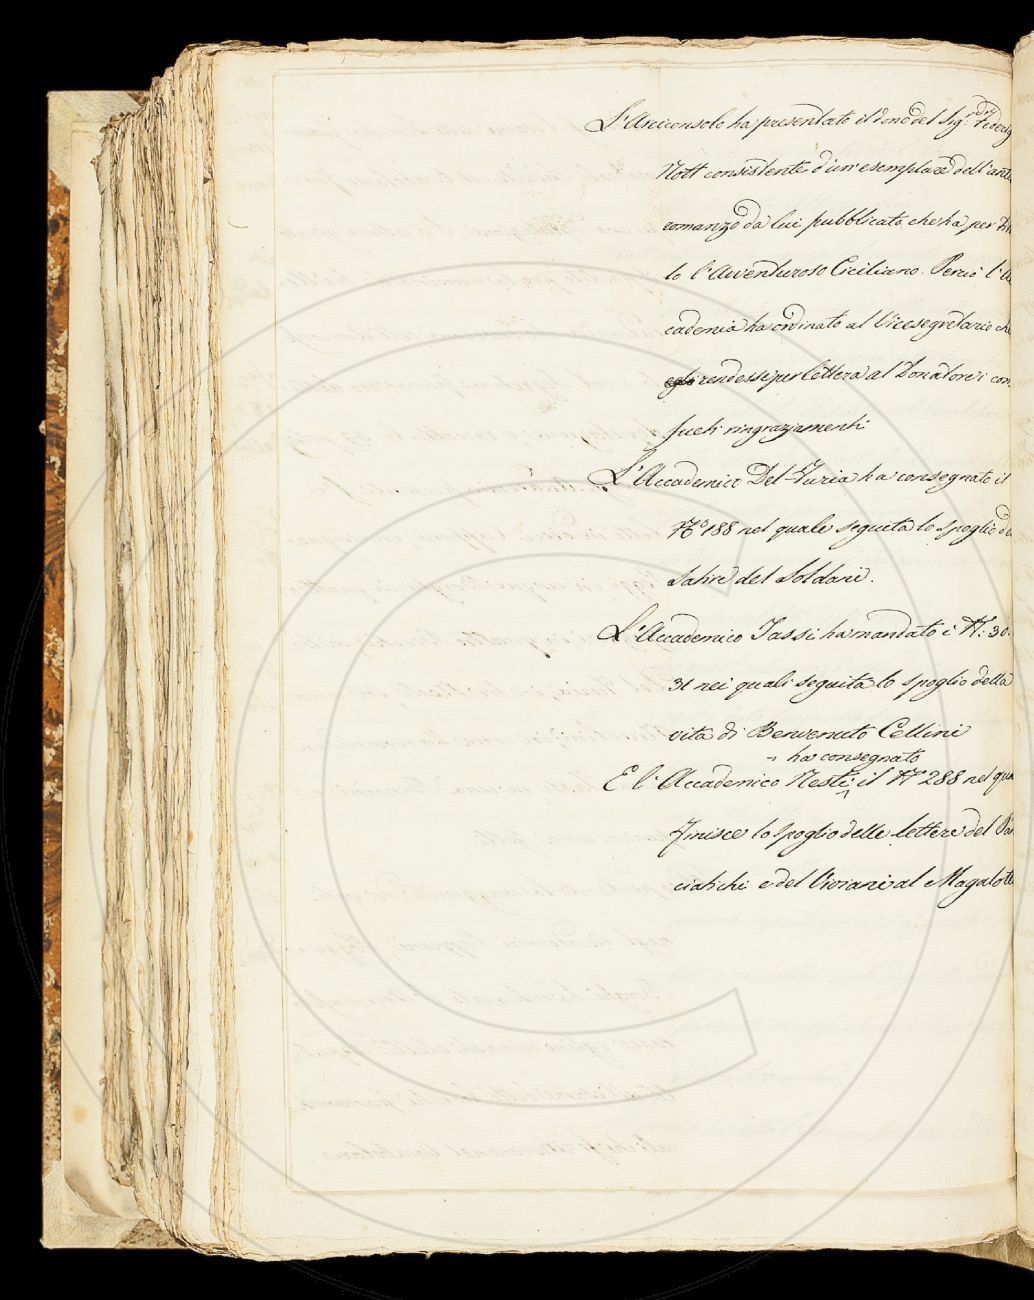 L'Arciconsolo ha presentato il dono del Sig.r dot.r Federig
Nott consistente d'un esemplare dell'anti
romanzo da lui pubblicato che ha per tit
lo l'Avventuroso Ciciliano. Perciò l'Ac
cademia ha ordinato al Vicesegretario che
egli rendesse per lettera al Donatore i con
sueti ringraziamenti
L'Accademico Del Furia ha consegnato il
N.º 188 nel quale seguita lo spoglio de
Satire del Soldani.
L'Accademico Tassi ha mandato i N.: 30.
31 nei quali seguita lo spoglio della
vita di Benvenuto Cellini
ha consegnato
E l'Accademico Nesti il N.º 288 nel qua
finisce lo spoglio delle lettere del Pan
ciatichi e del Viviani al Magalotti